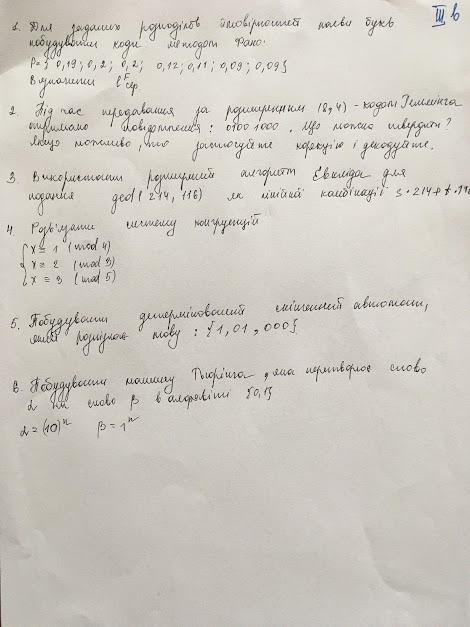 III в
1. Для заданих розподілів ймовірностей появи букв
побудувати коди методом Фано:
P = { 0,19; 0,2; 0,2; 0,12; 0,11; 0,09; 0,09}
Визначити l^F сер.
2. Під час передавання за розширеним (8,4) - кодом Геммінга
отримано повідомлення: 0100 1000. Що можна твердити?
Якщо можливо, то застосуйте корекцію і декодуйте.
3. Використати розширений алгоритм Евкліда для
подання gcd(214, 116) як лінійної комбінації s·214+t·116
4. Розв'язати систему конгруенцій
x ≡ 1 (mod 4)
x ≡ 2 (mod 3)
x ≡ 3 (mod 5)
5. Побудувати детермінований скінченний автомат,
який розпізнає мову: {1, 01, 000}.
6. Побудувати машину Тьюрінга, яка перетворює слово
α на слово β в алфавіті {0,1}
α = (10)^n β = 1^n